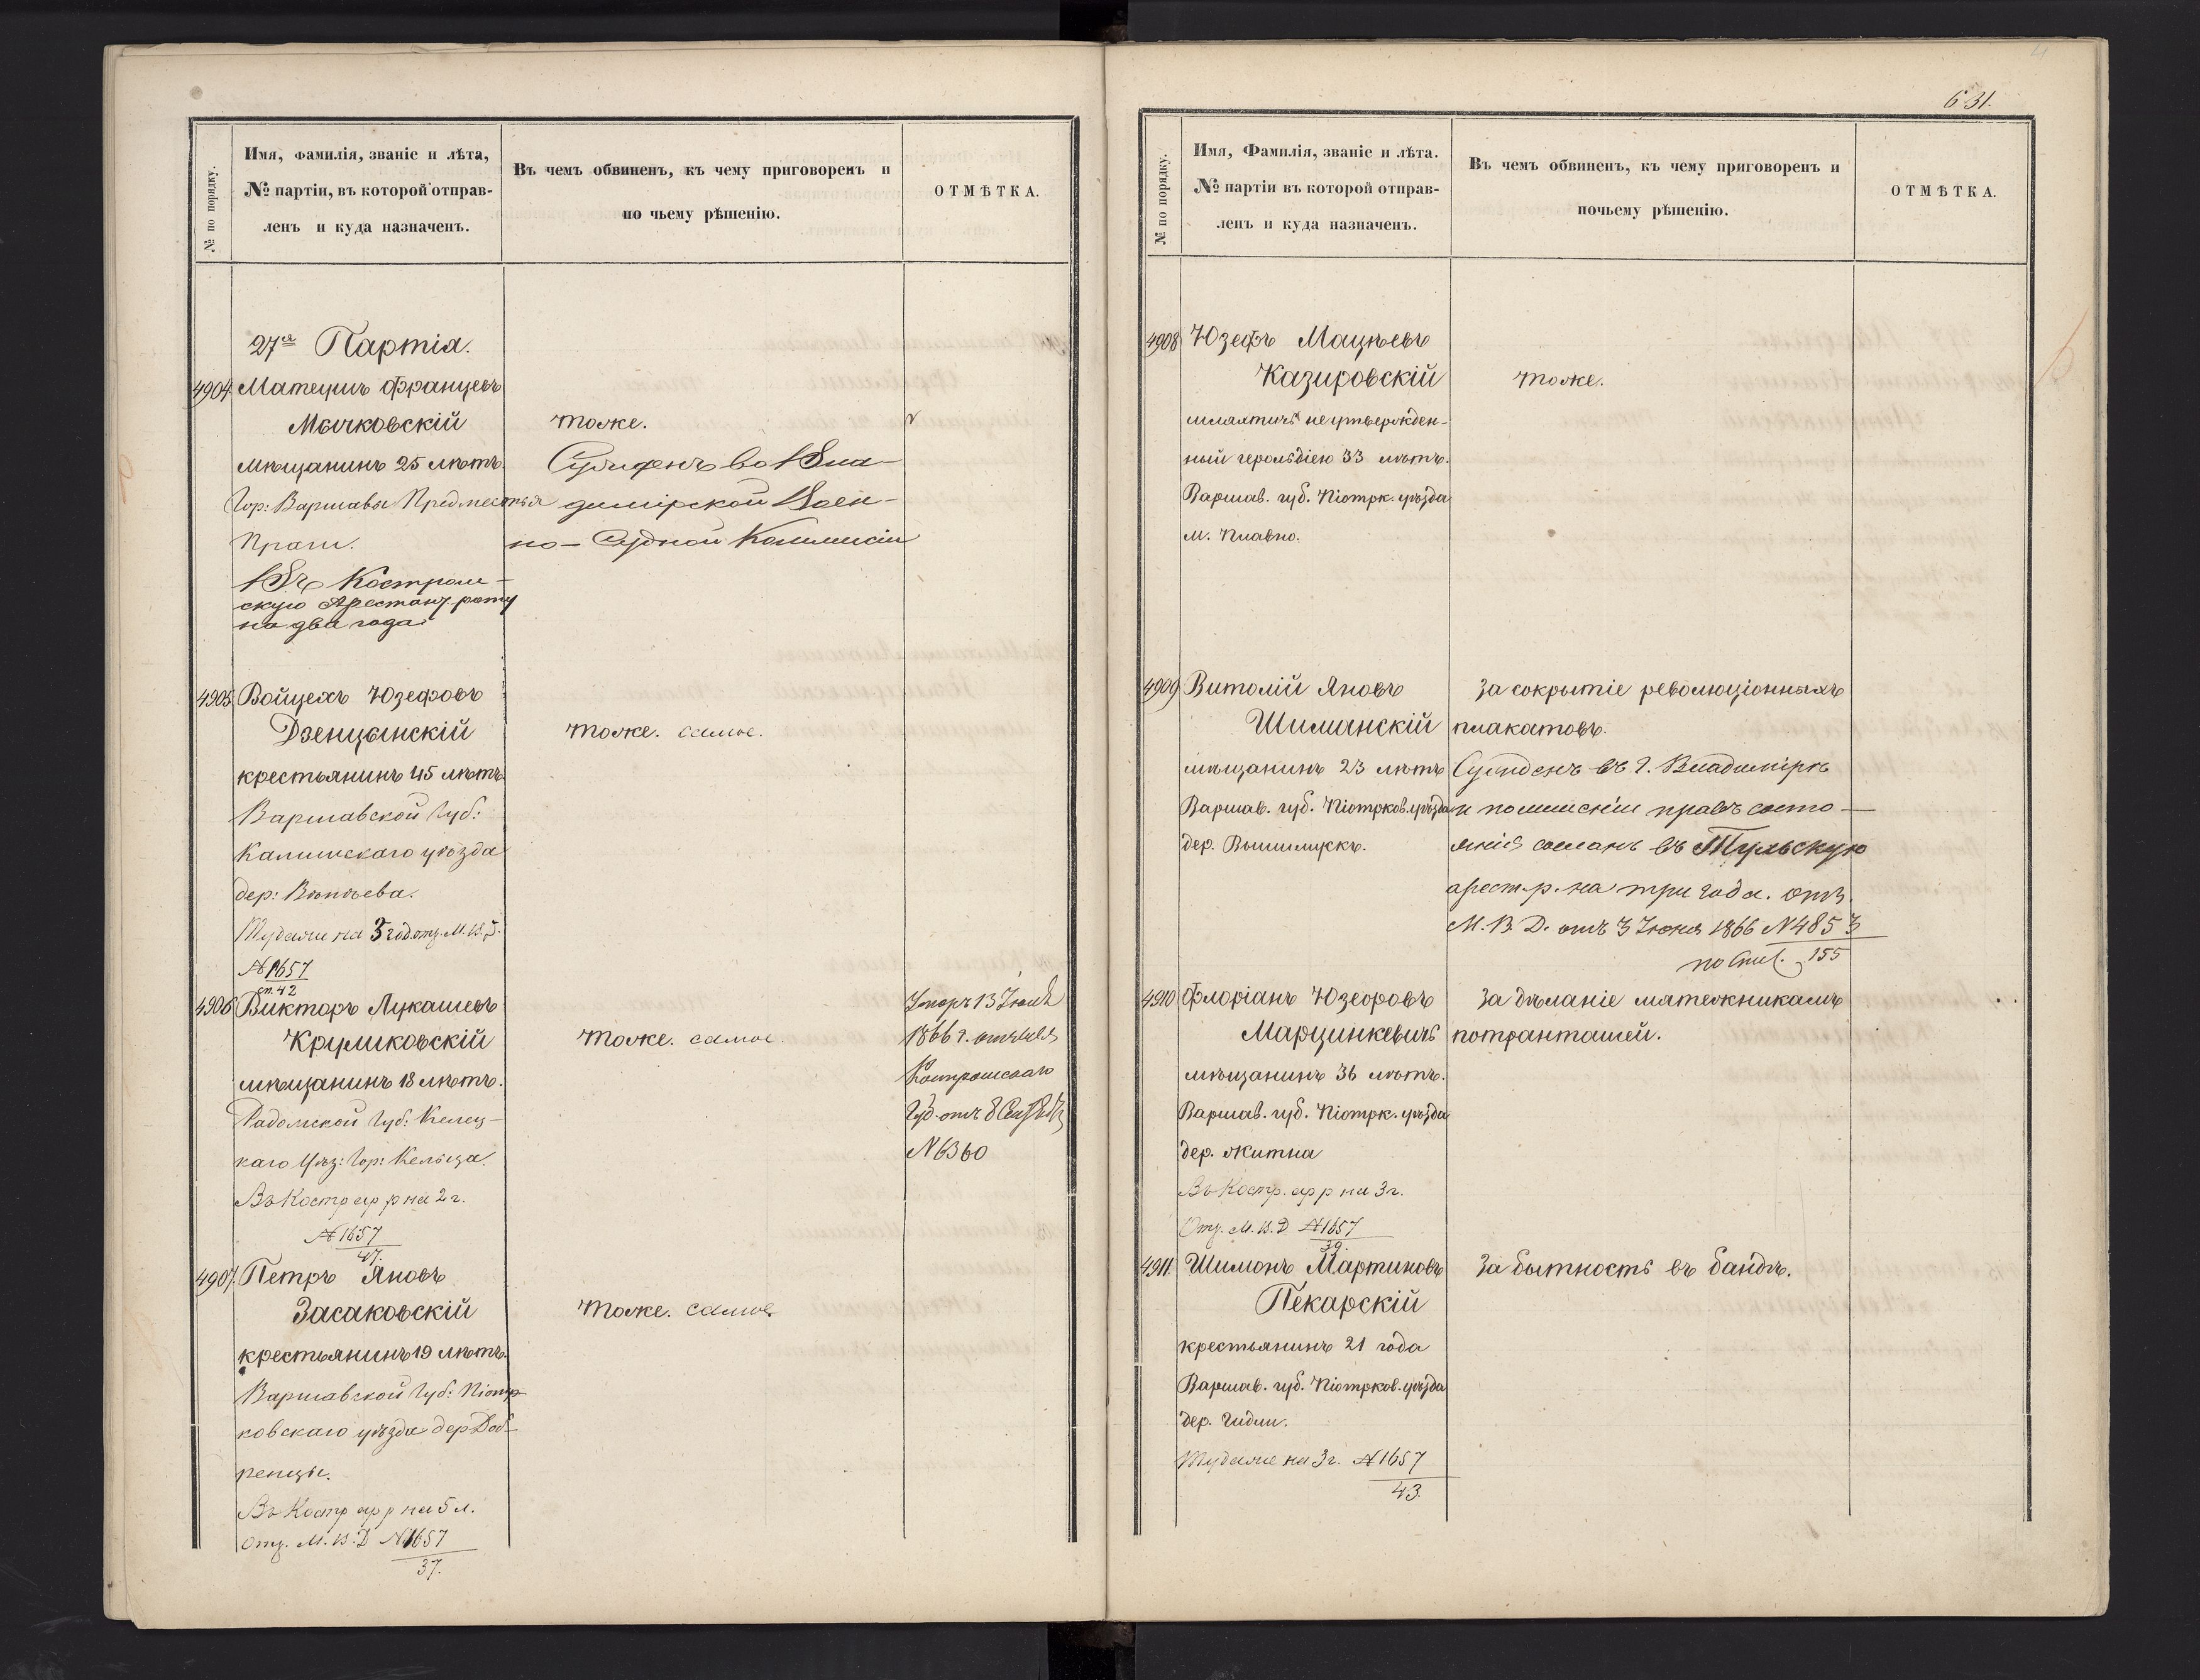 № по порядку.
Имя, Фамилія, званіе и лѣта,
№ партіи, въ которой отправ-
ленъ и куда назначенъ.
Въ чемъ обвиненъ, къ чему приговоренъ и
по чьему рѣшенію.
ОТМѢТКА.
27я Партія.
4904. Матеушъ Францевъ
Мычковскій
тоже.
мѣщанинъ 25 лѣтъ.
Гор: Варшавы Предместья
Праги.
Сужденъ во Вла-
димірской Воен-
но-Судной Коммисіи
Въ Костром-
скую Арестант. роту
на два года
4905 Войцехъ Юзефовъ
Дзенцынскій
тоже. самое.
крестьянинъ 45 лѣтъ
Варшавской Губ:
Калишскаго уѣзда
дер:
Тудаже на 3 год. отз. М. В. Д.
№ 1657
сп. 42
4906 Викторъ Лукашевъ
Круликовскій
тоже. самое.
мѣщанинъ 18 лѣтъ.
Радомской Губ: Келец-
каго Уѣз: Гор: Кельца.
Въ Костр ар р на 2 г.
№ 1657
47.
Умеръ 13 Іюля
1866 г.
Костромскаго
Губ. отъ 8 Сент.
№ 6360
4907. Петръ Яновъ
Засаковскій
тоже. самое
крестьянинъ 19 лѣтъ.
Варшавской Губ: Піотр-
ковскаго уѣзда дер Доб-
ренцы.
Въ Костр ар р на 5 л.
Отз. М. В. Д № 1657
37.
631.
№ по порядку.
Имя, Фамилія, званіе и лѣта.
№ партіи въ которой отправ-
ленъ и куда назначенъ.
Въ чемъ обвиненъ, къ чему приговоренъ и
почьему рѣшенію.
ОТМѢТКА.
4908 Юзефъ Мацѣевъ
Казировскій
тоже.
шляхтичъ неутвержден-
ный герольдіею 33 лѣтъ.
Варшав. губ. Піотрк. уѣзда
м. Плавно.
4909 Витолій Яновъ
Шиманскій
мѣщанинъ 23 лѣтъ
Варшав. губ. Піотрков. уѣзда
дер.
за сокрытіе революціонныхъ
плакатовъ.
Сужденъ въ г. Владимірѣ
и по лишеніи правъ состо-
янія сосланъ въ Тульскую
арест. р. на три года. отз.
М. В. Д. отъ 3 Іюня 1866 № 4853
по спис. 155
4910 Флоріанъ Юзеоровъ
Марцинкевичъ
мѣщанинъ 36 лѣтъ.
Варшав. губ. Піотрк. уѣзда
дер. Житна
Въ Костр. ар р на 3 г.
Отз. М. В. Д № 1657
39.
За дѣланіе мятежникамъ
потранташей.
4911. Шимонъ Мартиновъ
Пекарскій
За бытность въ бандѣ.
крестьянинъ 21 года
Варшав. губ. Піотрков. уѣзда
дер. Гидли.
Тудаже на 3 г. № 1657
43.